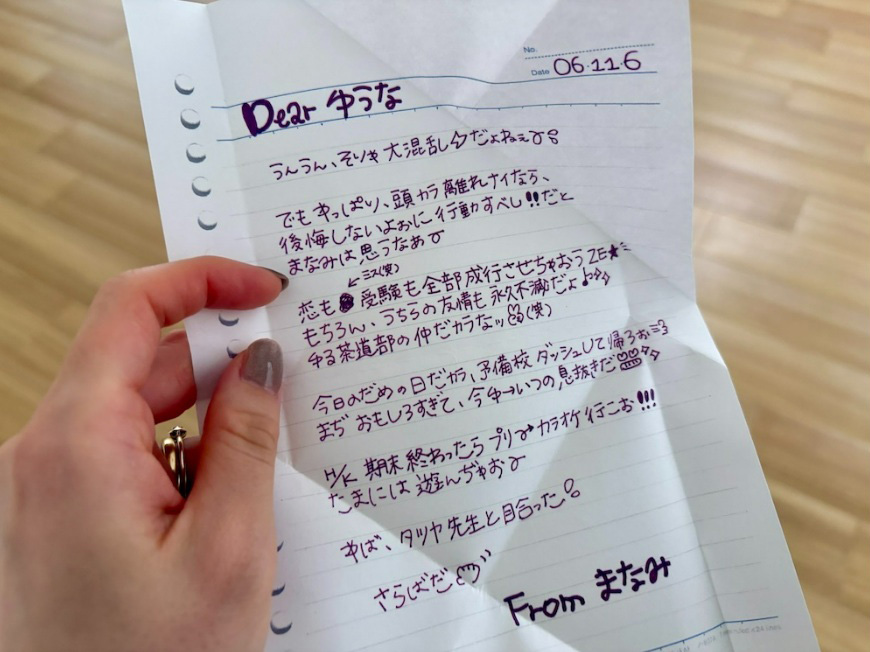 No.
Date 06.11.6
Dear ゆうな
うんうん、そりゃ大混乱だよねぇ
でもやっぱり、頭カラ離れナイなら、
後悔しないよおに行動すべし!!だと
まなみは思うなあ
←ミス(笑)
恋も受験も全部成行させちゃおうZE★
もちろん、うちらの友情も永久不滅だよ♪
ゆる茶道部の仲だカラなッ(笑)
今日のだめの日だから、予備校ダッシュして帰ろお
まぢおもしろすぎて、今中→いつの息抜きだ
H/K 期末終わったらプリ→カラオケ行こお!!!
たまには遊んぢゃお
やば、タツヤ先生と目合った
さらばだ
From まなみ